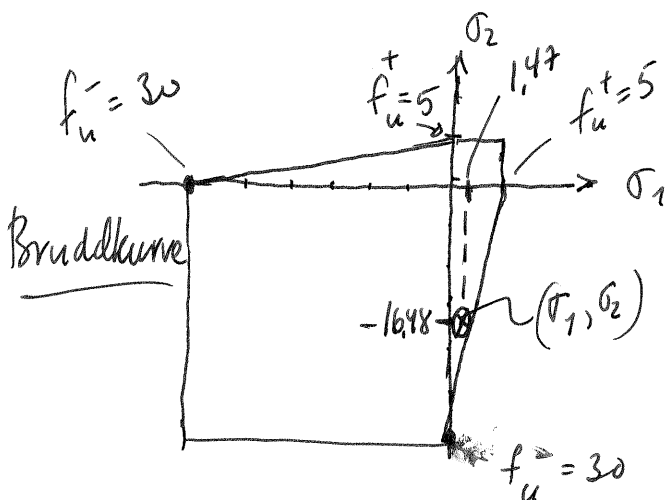 σ₂
f_u⁻ = 30
f_u⁺ = 5
1,47
f_u⁺ = 5
σ₁
Bruddkurve
-16,48
(σ₁, σ₂)
f_u⁻ = 30